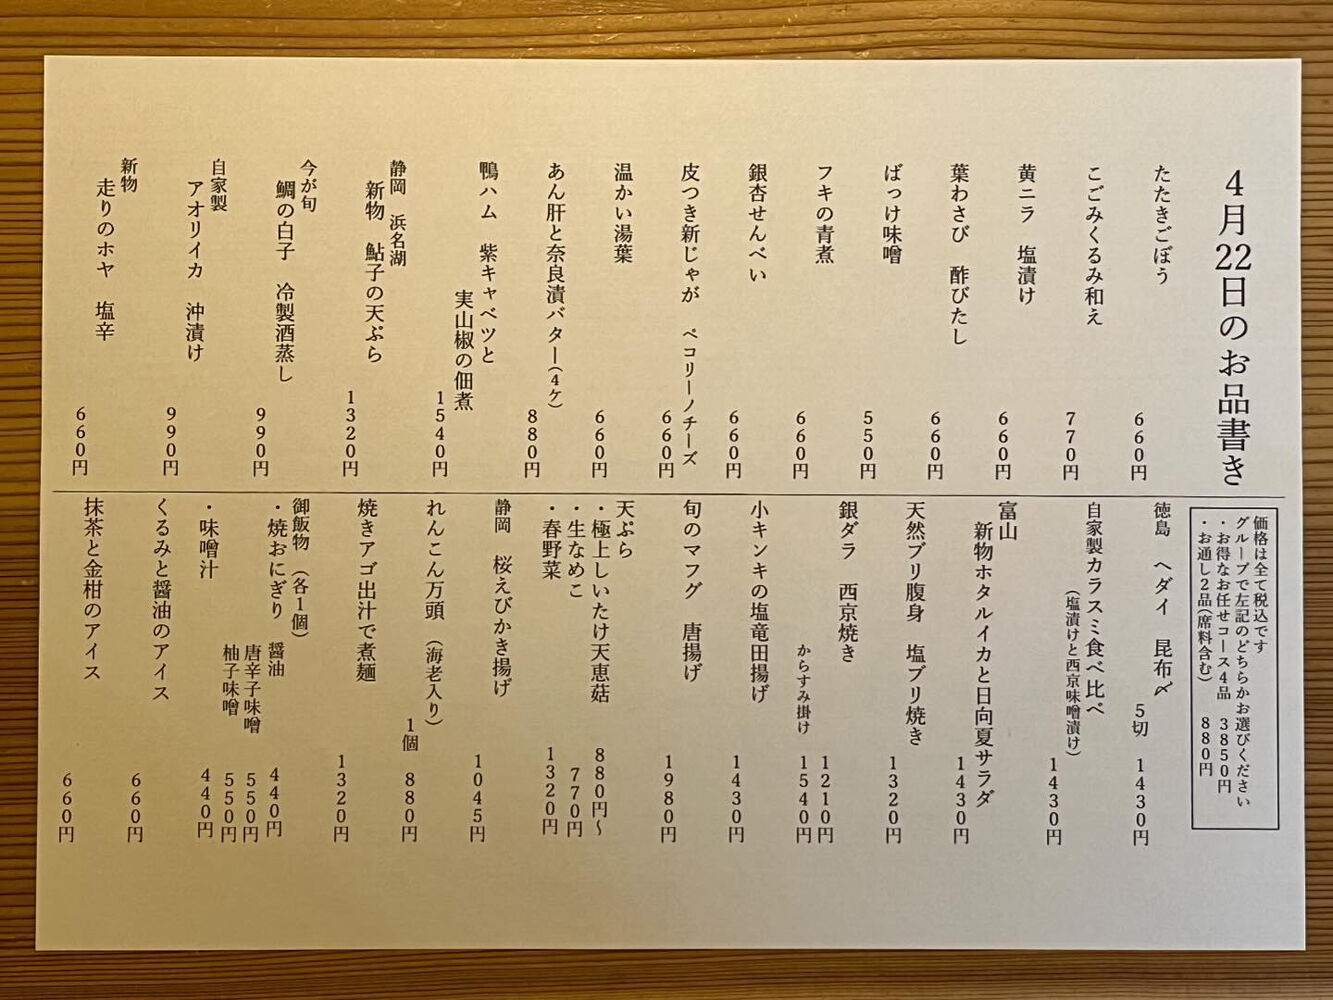 4月22日のお品書き
たたきごぼう
660円
こごみくるみ和え
770円
黄ニラ 塩漬け
660円
葉わさび 酢びたし
660円
ばっけ味噌
550円
フキの青煮
660円
銀杏せんべい
660円
皮つき新じゃが ペコリーノチーズ
660円
温かい湯葉
660円
あん肝と奈良漬バター(4ケ)
880円
鴨ハム 紫キャベツと
実山椒の佃煮
1540円
静岡 浜名湖
新物 鮎子の天ぷら
1320円
今が旬
鯛の白子 冷製酒蒸し
990円
自家製
アオリイカ 沖漬け
990円
新物
走りのホヤ 塩辛
660円
価格は全て税込です
グループで左記のどちらかお選びください
・お得なお任せコース4品 3850円
・お通し2品(席料含む) 880円
徳島 ヘダイ 昆布〆
5切 1430円
自家製カラスミ食べ比べ
(塩漬けと西京味噌漬け)
1430円
富山
新物ホタルイカと日向夏サラダ
1430円
天然ブリ腹身 塩ブリ焼き
1320円
銀ダラ 西京焼き
1210円
からすみ掛け 1540円
小キンキの塩竜田揚げ
1430円
旬のマフグ 唐揚げ
1980円
天ぷら
・極上しいたけ天恵菇 880円~
・生なめこ 770円
・春野菜 1320円
静岡 桜えびかき揚げ
1045円
れんこん万頭 (海老入り)
1個 880円
焼きアゴ出汁で煮麺
1320円
御飯物 (各1個)
・焼おにぎり 醤油 440円
唐辛子味噌 550円
柚子味噌 550円
・味噌汁 440円
くるみと醤油のアイス
660円
抹茶と金柑のアイス
660円